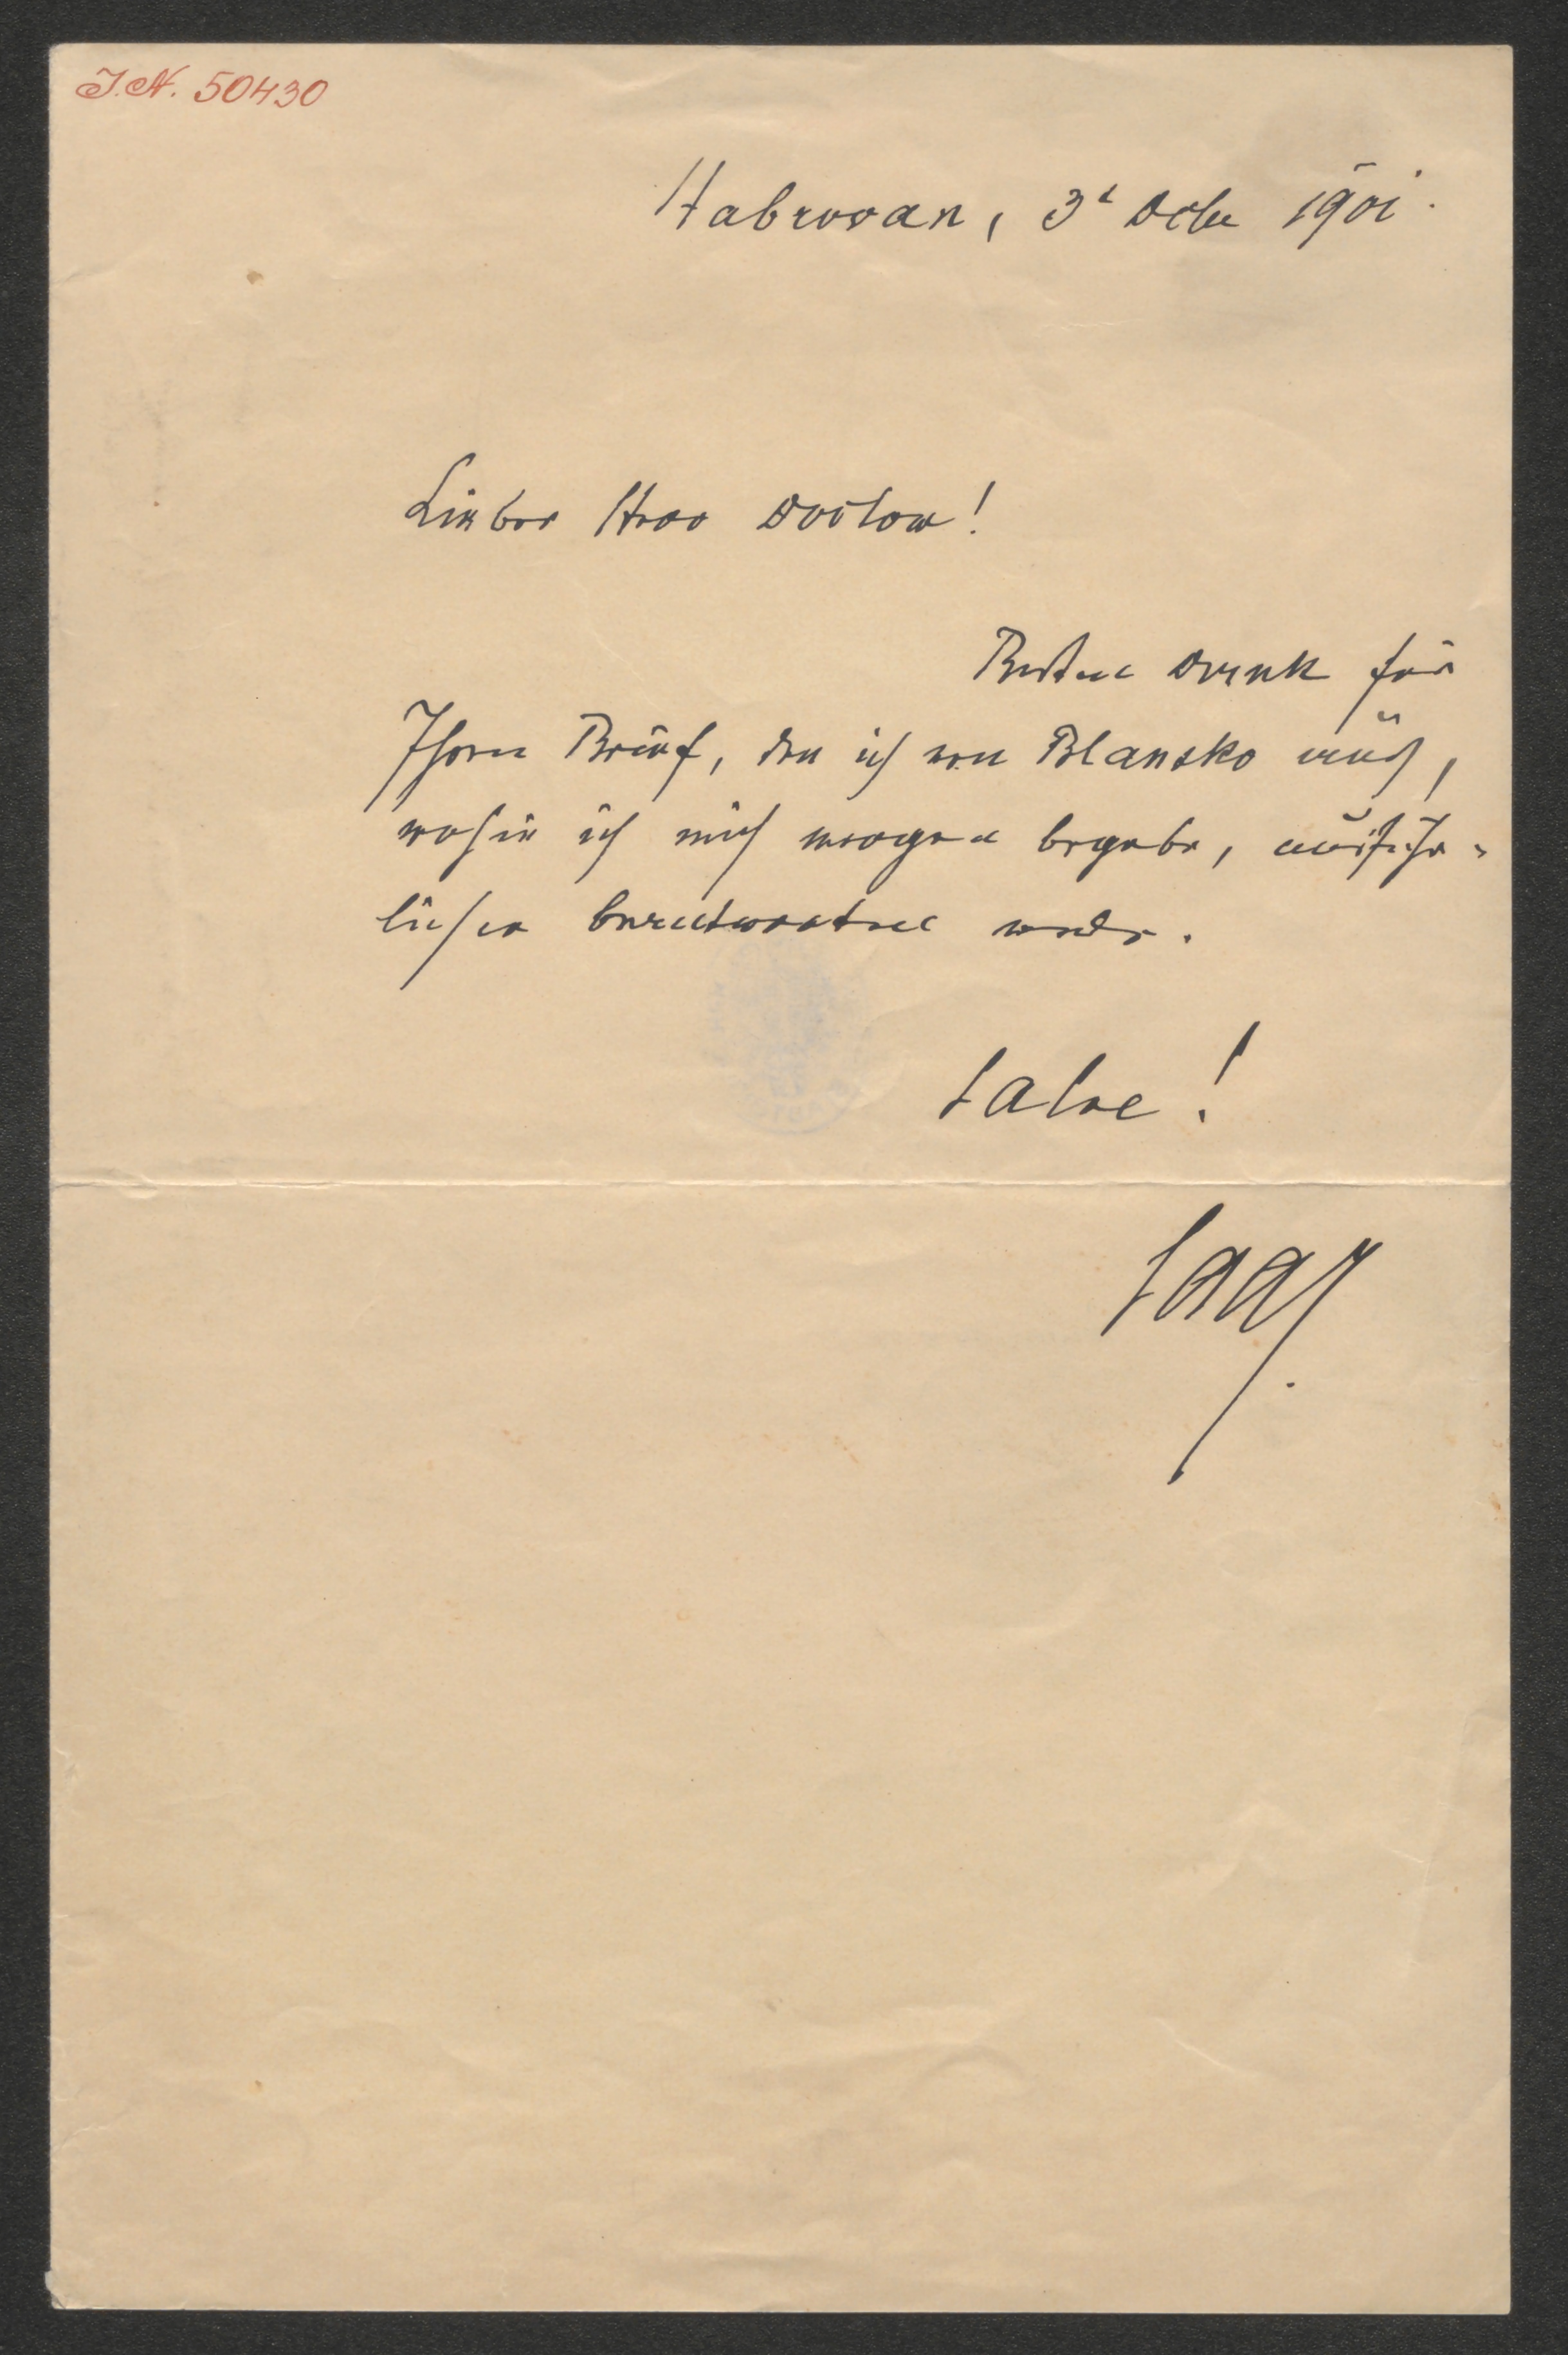 I.N. 50430
Habrovan, 3t Octbr 1901.
Lieber Herr Doctor!
Besten Dank für
Ihren Brief, den ich von Blansko aus,
wohin ich mich morgen begebe, ausführ-
licher beantworten werde.
Salve!
Saar.